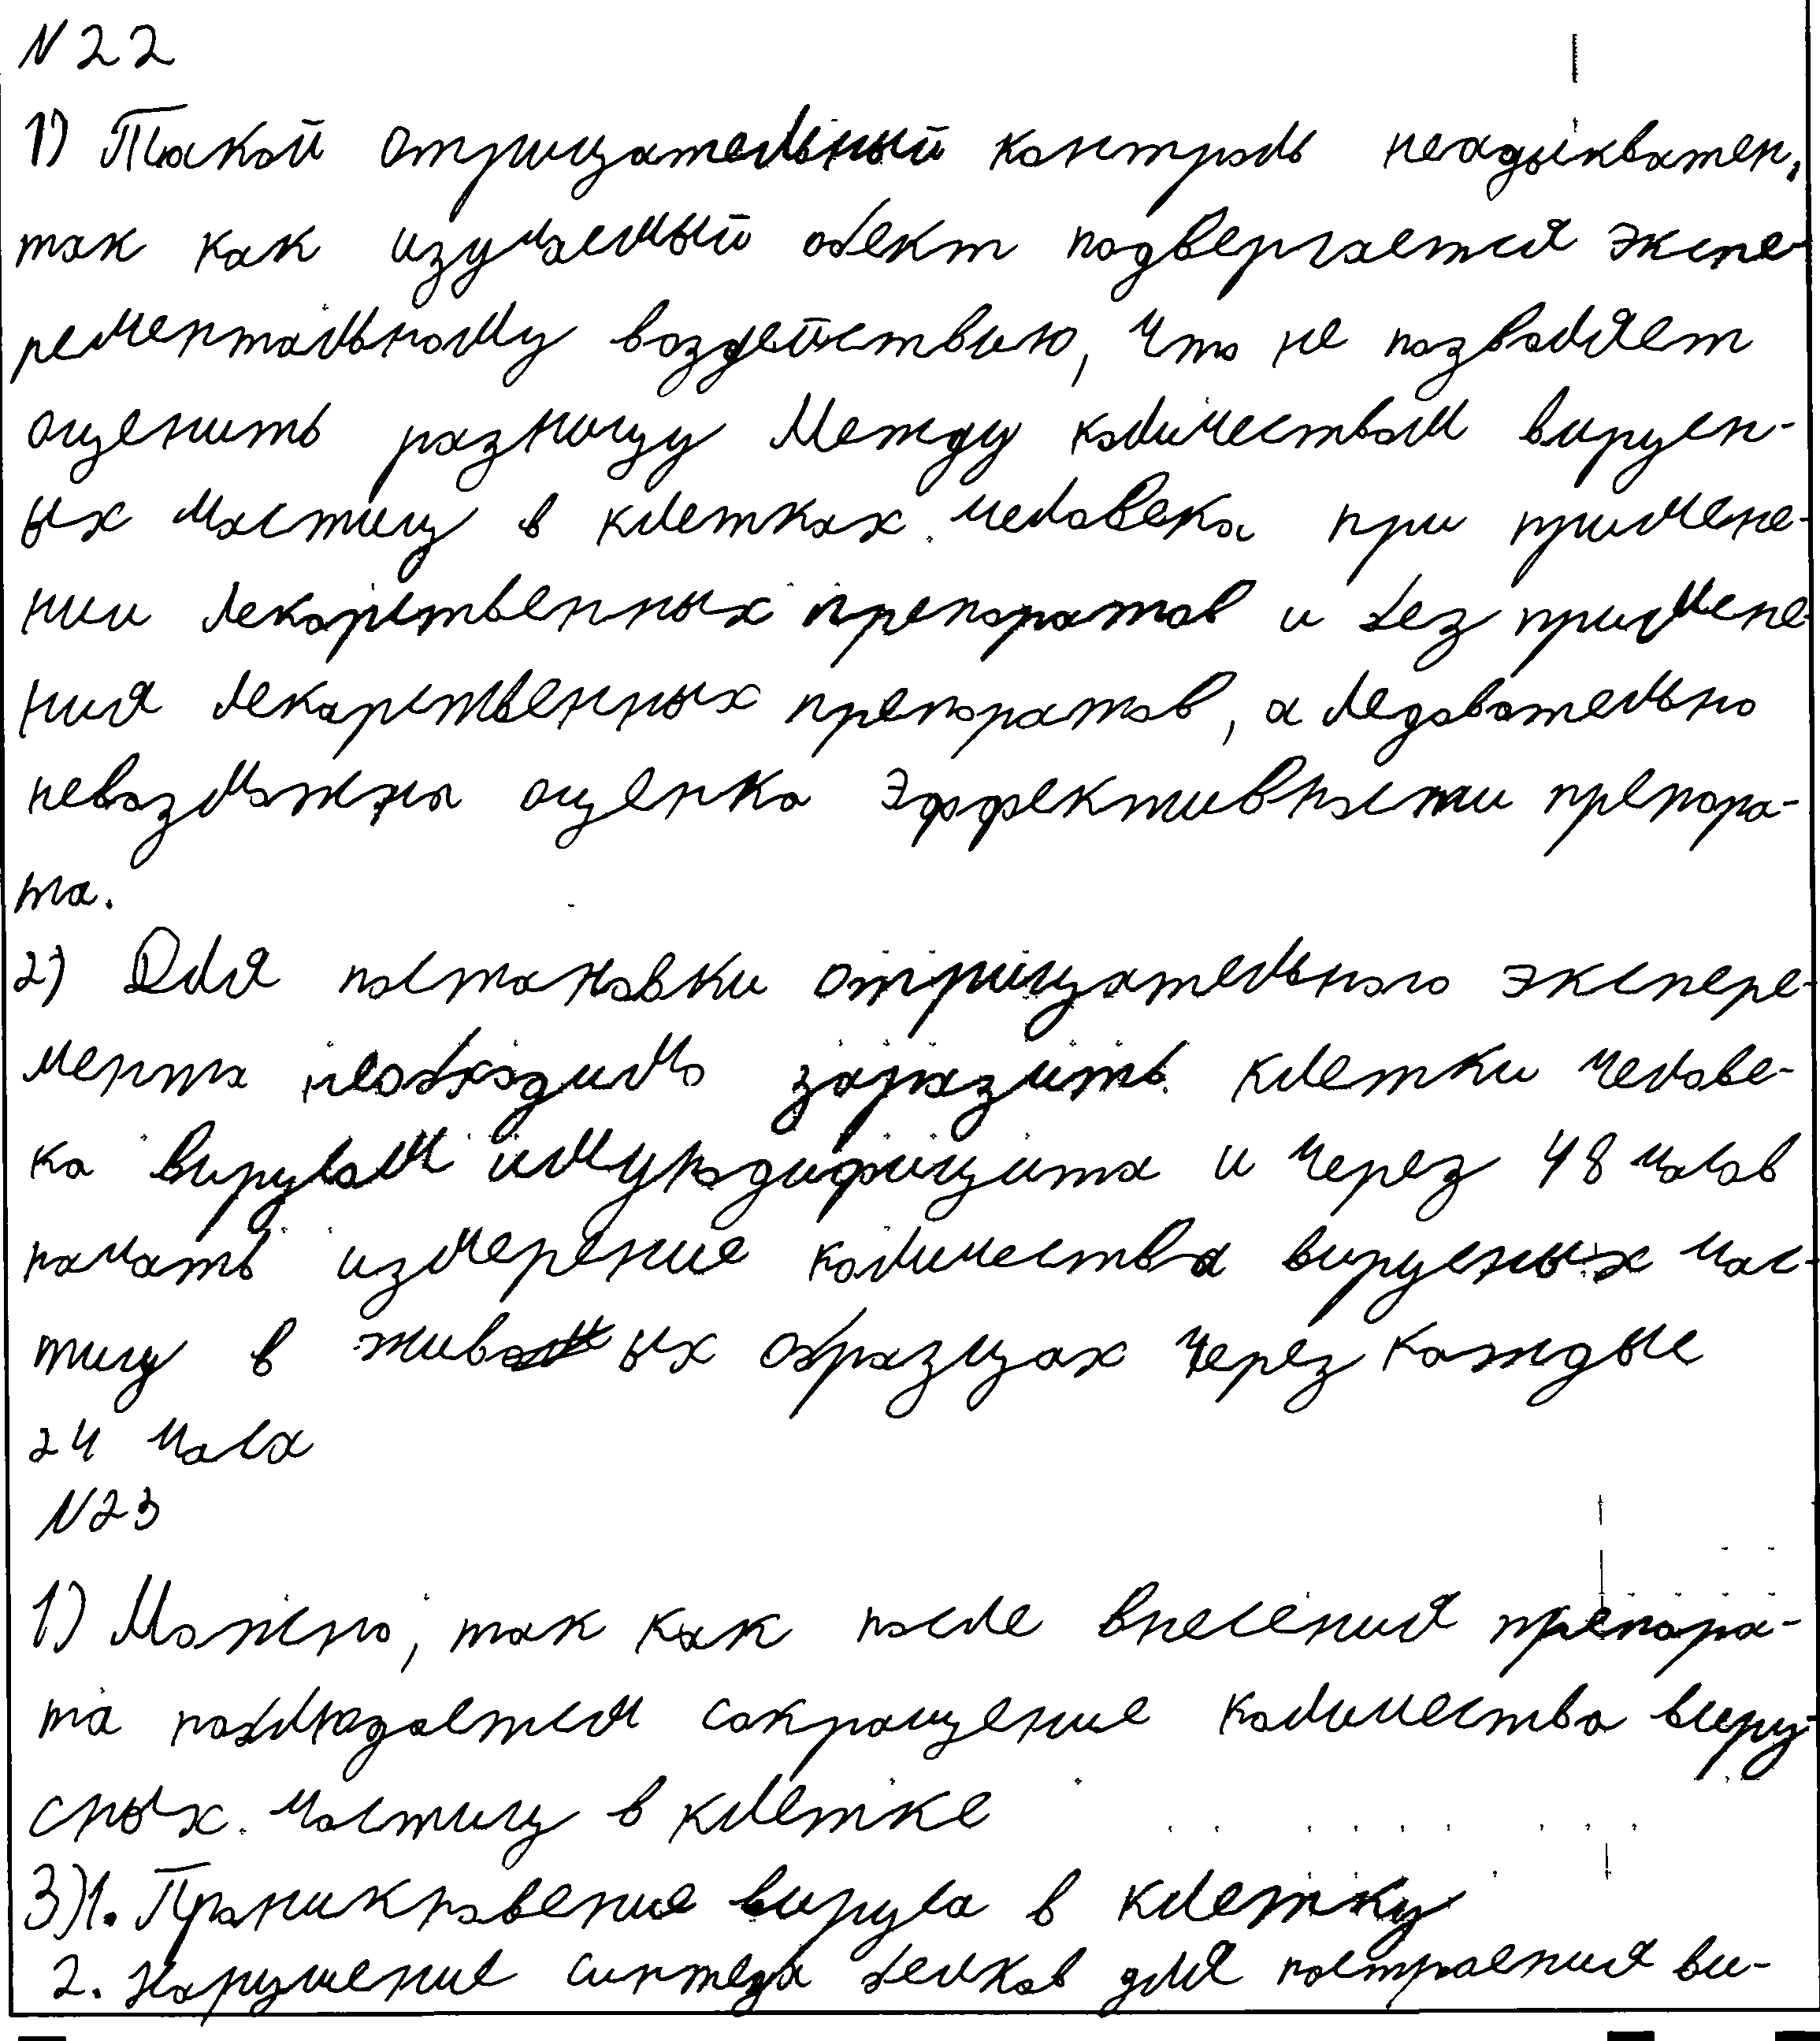 N22
1) Такой отрицательный контроль неадыкватен,
так как изучаемый обект подвергается экспе-
рементальному воздействию, что не позволяет
оценить разницу между количеством вирусн-
ых частиц в клетках человека при примене-
нии лекарственных препаратов и без примене-
ния лекарственных препаратов, а ледовательно
невозможна оценка эффективности препара-
та.
2) Для постановки отрицательного экспере-
мента необходимо заразить клетки челове-
ка вирусом имунодифицита и через 48 часов
начать измерение количества вирусных час-
тиц в живых образцах через каждые
24 часа
N23
1) Можно, так как после внесения препара-
та наблюдается сокращение количества виру-
сных частиц в клетке
3)1. Проникновение вируса в клетку
2. Нарушение синтеза белков для построения ви-